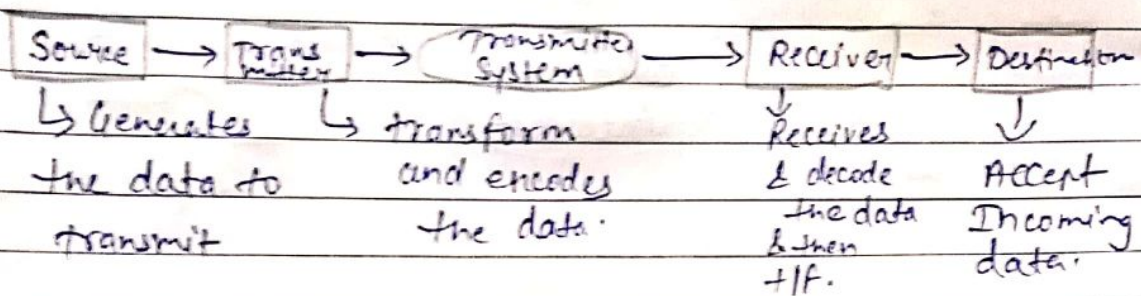 Source → Transmitter → Transmitter System → Receiver → Destination
↳ Generates the data to transmit
↳ transform and encodes the data.
↓ Receives & decode the data & then t/f.
↓ Accept Incoming data.